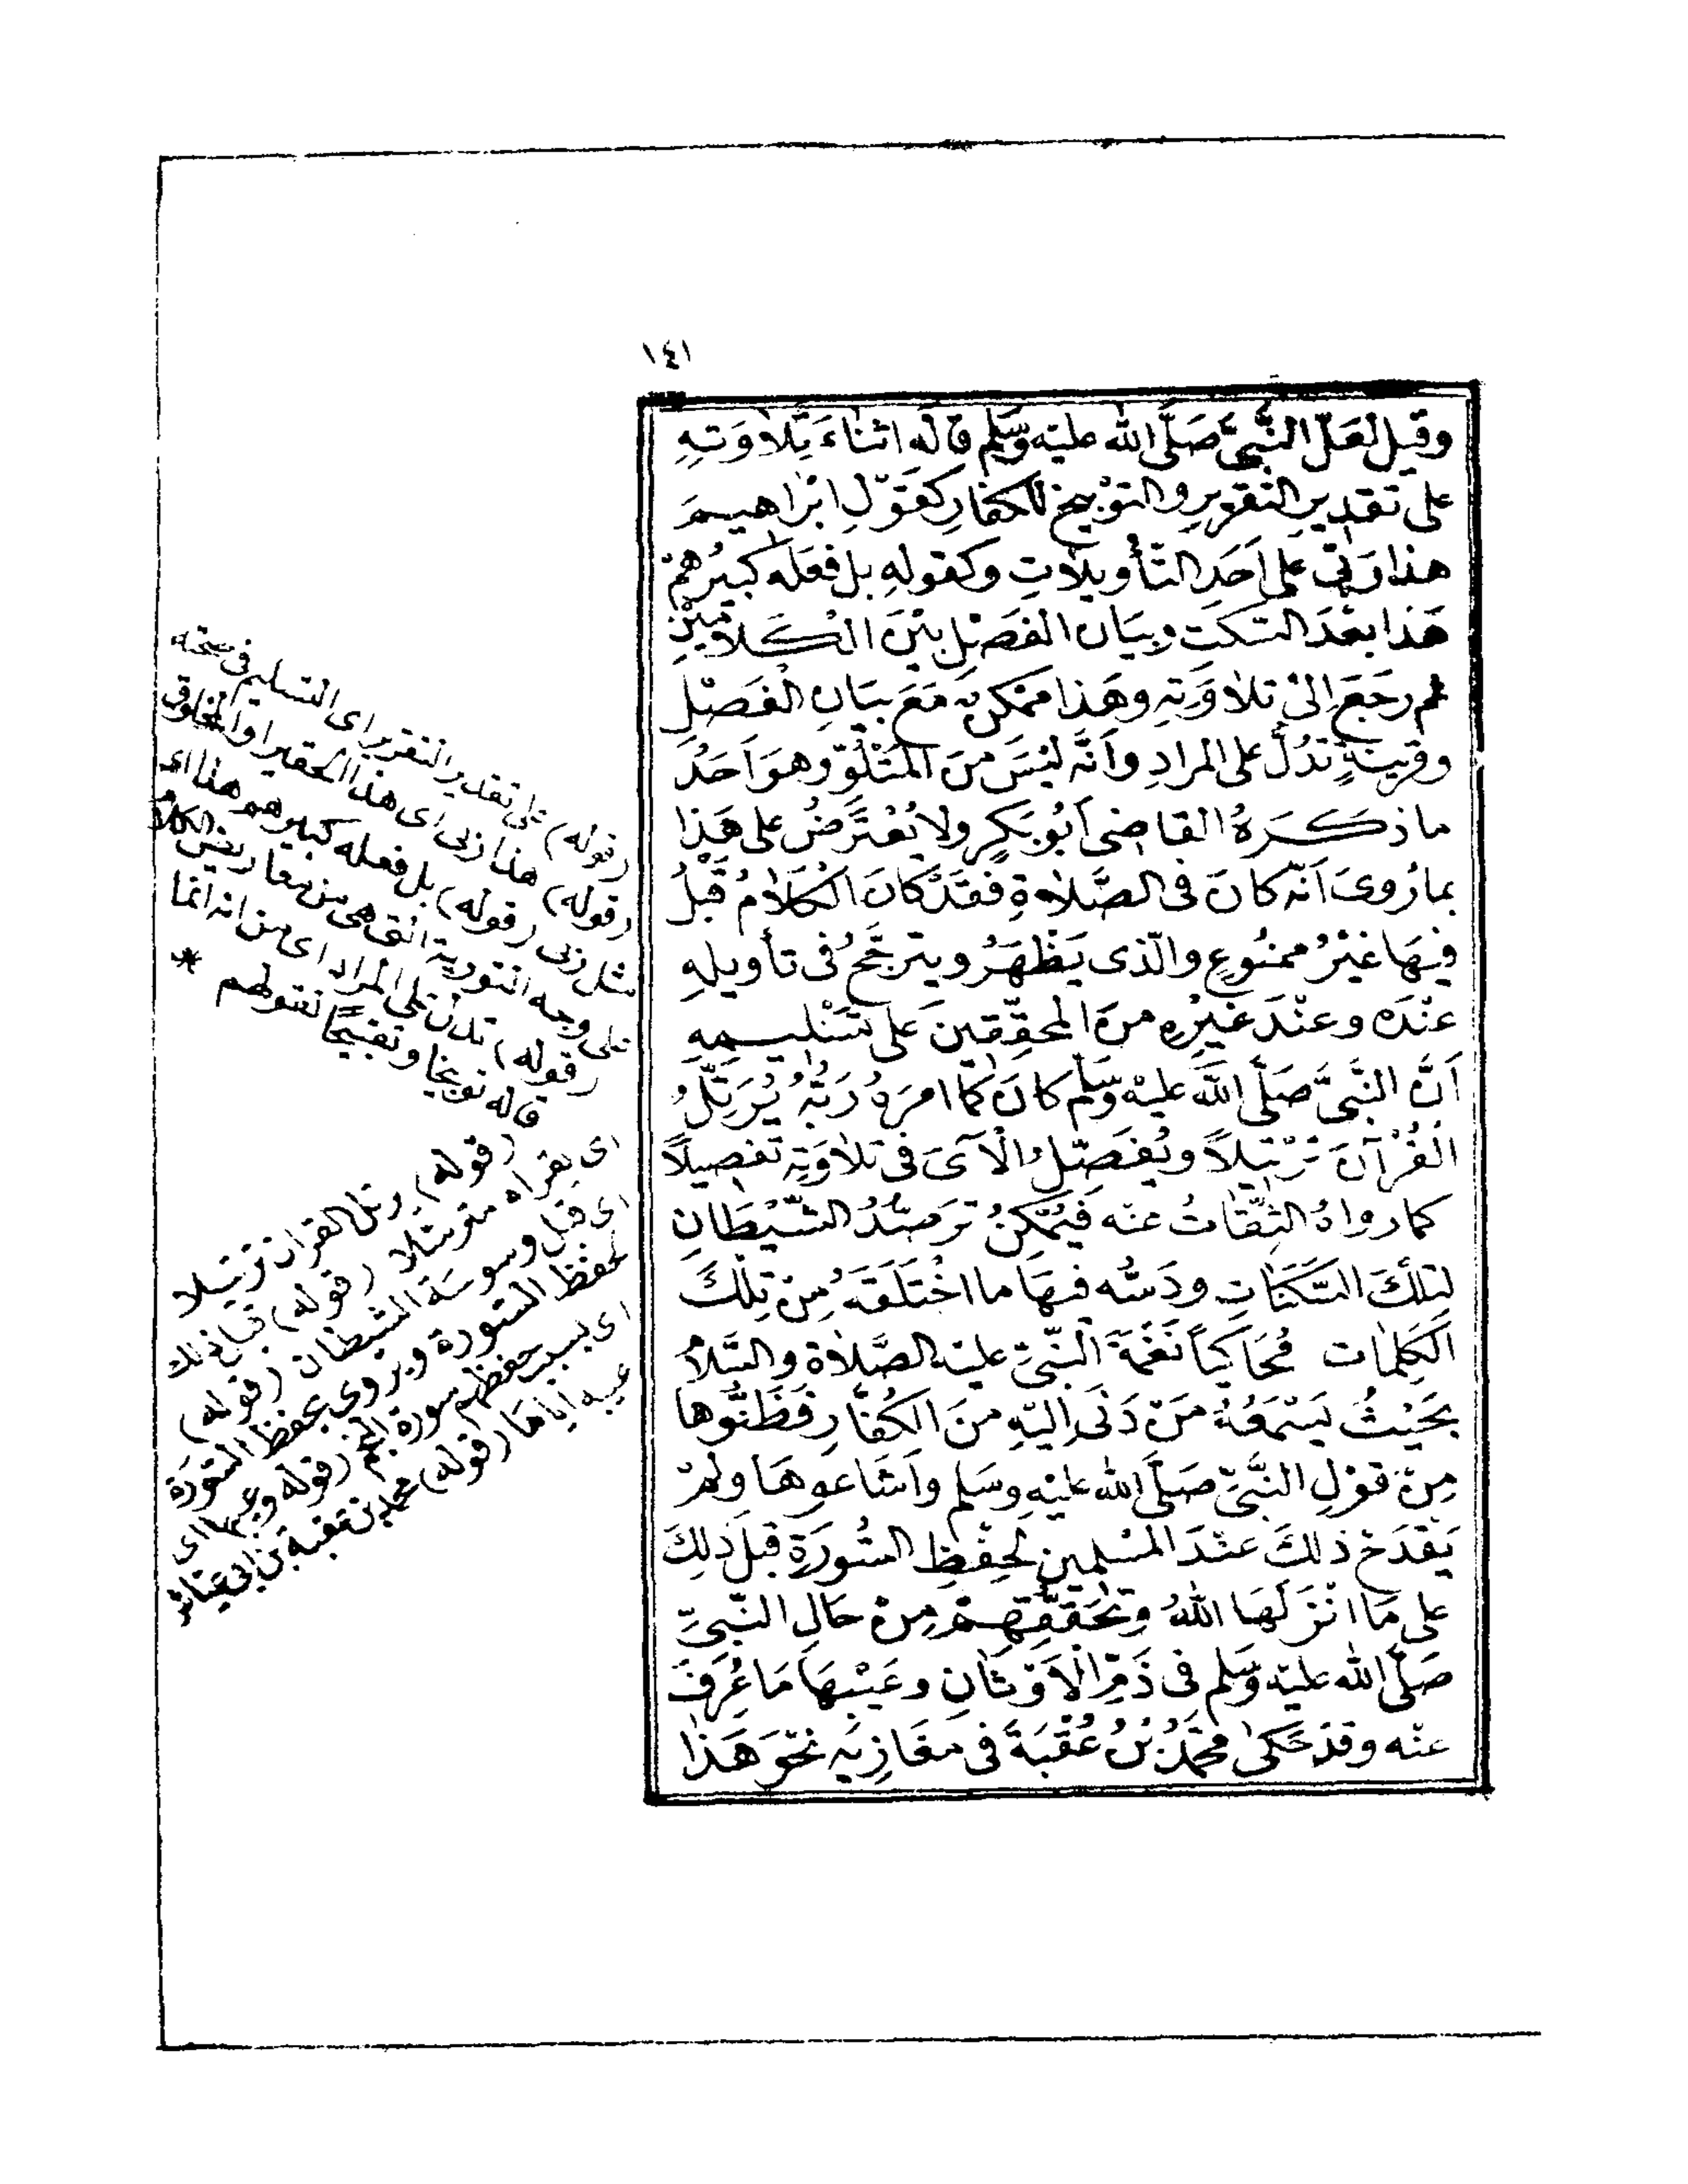 ١٤١
وقيل لعَلّ النَّبِيَّ صَلَّى الله عليْه وسَلَّم قاله اثناءَ تِلاوَتِهِ
على تقديرِ التقريرِ والتوْبيخ للكفارِ كقَوْلِ ابْراهيمَ
هذا رَبّي على اَحَدِ التّأويلاتِ وكقولهِ بل فعَله كبيرُهمْ
هَذا بعْدَ السّكتِ وبيَان الفصْل بيْنَ الكَلامَيْنِ
ثم رجَعَ الىْ تلاوَتِهِ وهَذا ممْكن مَعَ بيَانِ الفَصْلِ
وقرينةٍ تدُلُّ على المرادِ وَاَنَّه ليْسَ منَ المتْلُوّ وهوَ اَحَدُ
ما ذكَرَهُ القاضى اَبُو بَكرٍ ولا يُعْتَرَضُ على هَذا
بما رُوىَ اَنّه كانَ فى الصَّلاةِ فقَدْ كانَ الكَلامُ قبْلُ
فيهَا غيْرُ ممنُوعٍ والّذى يَظْهَرُ ويترجَّحُ فى تأويلهِ
عنْدَه وعنْدَ غيْرِهِ منَ المحقّقينَ على تَسْليمِهِ
اَنَّ النَّبىَّ صَلَّى اللهَ عليْه وسَلَّم كانَ كَما امرَهُ رَبُّهُ يُرَتّلُ
القُرْآنَ ترْتيلاً ويُفَصّلُ الْآىَ فى تلاوَتِهِ تفصيلاً
كما رواهُ الثِّقاتُ عنْه فيُمْكنُ ترَصُّدُ الشّيْطَانِ
لتلْكَ السَّكَتَاتِ ودَسُّه فيهَا ما اخْتَلَقَهُ مِنْ تِلْكَ
الكَلِمَات مُحَاكياً نَغْمَةَ النَّبىِّ عليْه الصَّلاة والسَّلامُ
بحَيْثُ يَسْمَعُهُ مَنْ دَنَى اِليْهِ منَ الكُفّارِ فَظَنُّوها
مِنْ قوْلِ النَّبىِّ صَلَّى الله عليْهِ وسَلم وَاَشَاعوهَا ولمْ
يَقْدَحْ ذلكَ عنْدَ المسْلمين لحِفْظِ السُّورَةِ قبْلَ ذلِكَ
على مَا انْزَلَهَا اللهُ وتحَقّقهمْ مِنْ حَالِ النَّبىِّ
صَلَّى الله عليْه وسَلم فى ذَمّ الْاَوْثَانِ وعَيْبهَا مَا عُرِفَ
عنْه وقدْ حَكى محمَّدُ بْنُ عُقْبَةَ فى مغَازِيهِ نحْوَ هَذا
(قوله) على تقدير التقرير اى التسليم فى صحته
(قوله) هذا ربى اى هذا الحقير او المخلوق
مثل ربى (قوله) بل فعله كبيرهم هذا اى
على وجه التورية التى هى من معاريض الكلام
(قوله) تدل على المراد اى من انه انما
قاله توبيخا وتقبيحًا لقولهم *
(قوله) رتل القران ترتيلا
اى يقراه مترتلا (قوله) قبل ذلك
اى قبل وسوسة الشيطان (قوله)
لحفظ السورة ويروى بحفظ السورة
اى بسبب حفظهم سورة النجم (قوله وعيبها اى
عيبه اياها (قوله) محمد بن عقبة بن ابى عياش